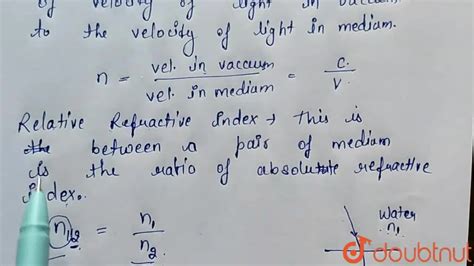 of velocity of light in vaccum
to the velocity of light in mediam.
n = vel. in vaccum / vel. in mediam = c. / v.
Relative Refractive Index → This is
the between a pair of mediam
is the ratio of absolute refractive
index.
n12 = n1 / n2
Water
n1
doubtnut